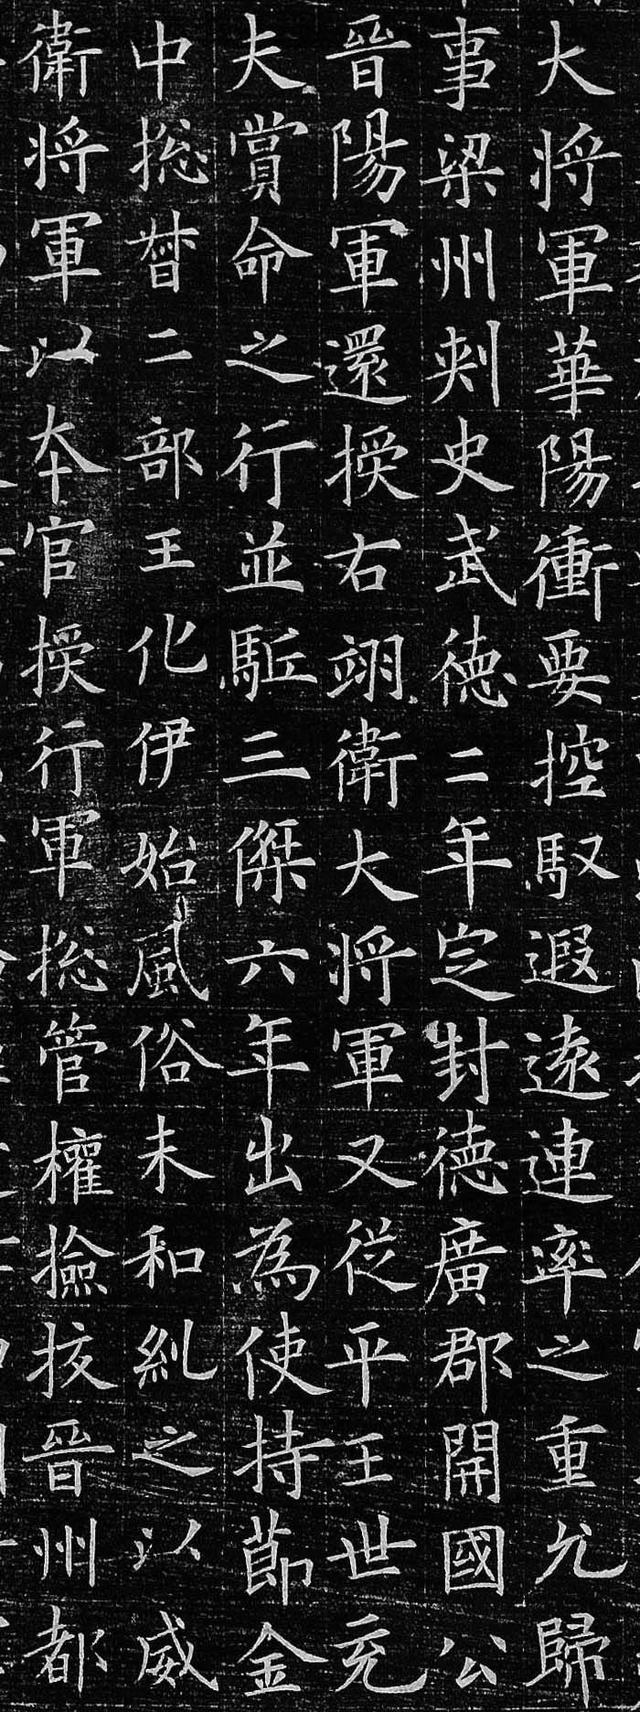 大将軍華陽衝要控馭遐遠連率之重允歸
事梁州刺史武德二年定封德廣郡開國公
晉陽軍還授右翊衛大将軍又從平王世充
夫賞命之行並駈三傑六年出為使持節金
中揔督二部王化伊始風俗未和糺之以威
衛将軍以本官授行軍揔管權撿挍晉州都